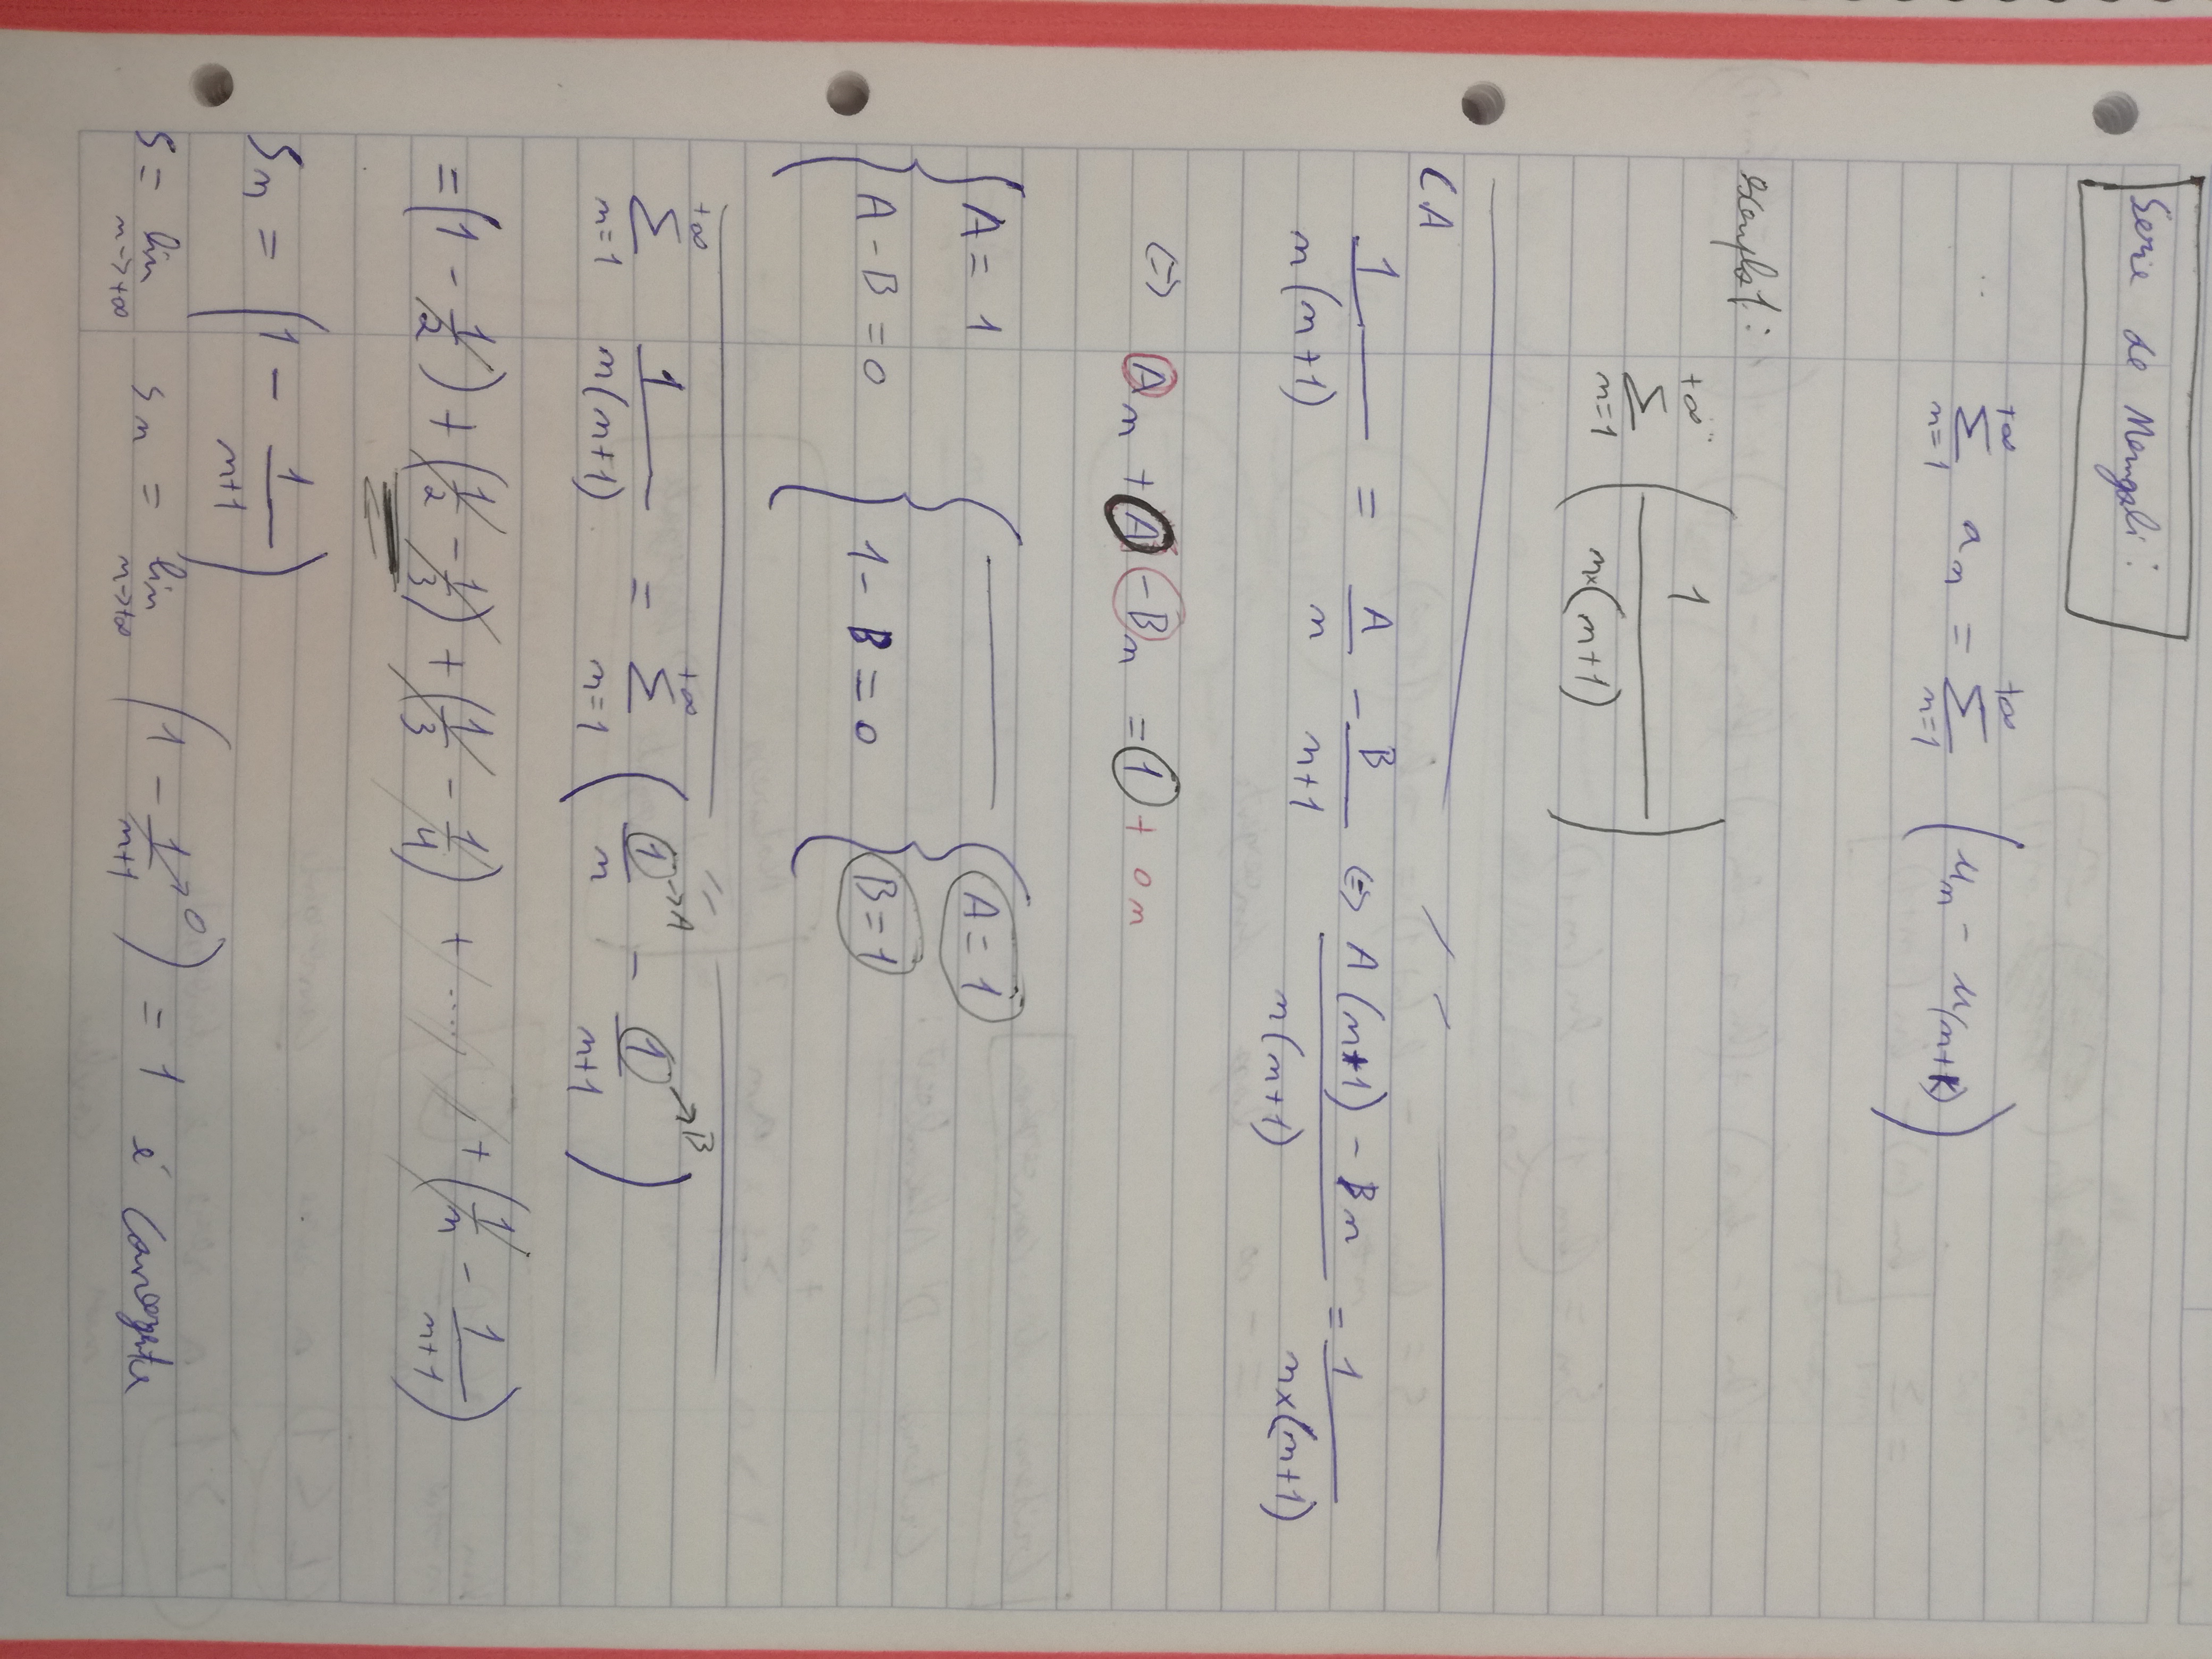 Serie de Mengoli:
+∞ Σ n=1 a_n = +∞ Σ n=1 (u_n - u_(n+k))
Exemplo 1:
+∞ Σ n=1 (1 / n×(n+1))
CA
1 / n(n+1) = A / n - B / n+1 (=) A(n+1) - Bn / n(n+1) = 1 / n×(n+1)
(=) An + A - Bn = 1 + 0n
{ A = 1 { ——— { A = 1
{ A - B = 0 { 1 - B = 0 { B = 1
+∞ Σ n=1 1 / n(n+1) = +∞ Σ n=1 (1→A / n - 1→B / n+1)
= (1 - 1/2) + (1/2 - 1/3) + (1/3 - 1/4) + .... + (1/n - 1/n+1)
Sn = (1 - 1 / n+1)
S = lim n→+∞ Sn = lim n→+∞ (1 - 1/n+1 →0) = 1 é Convergente